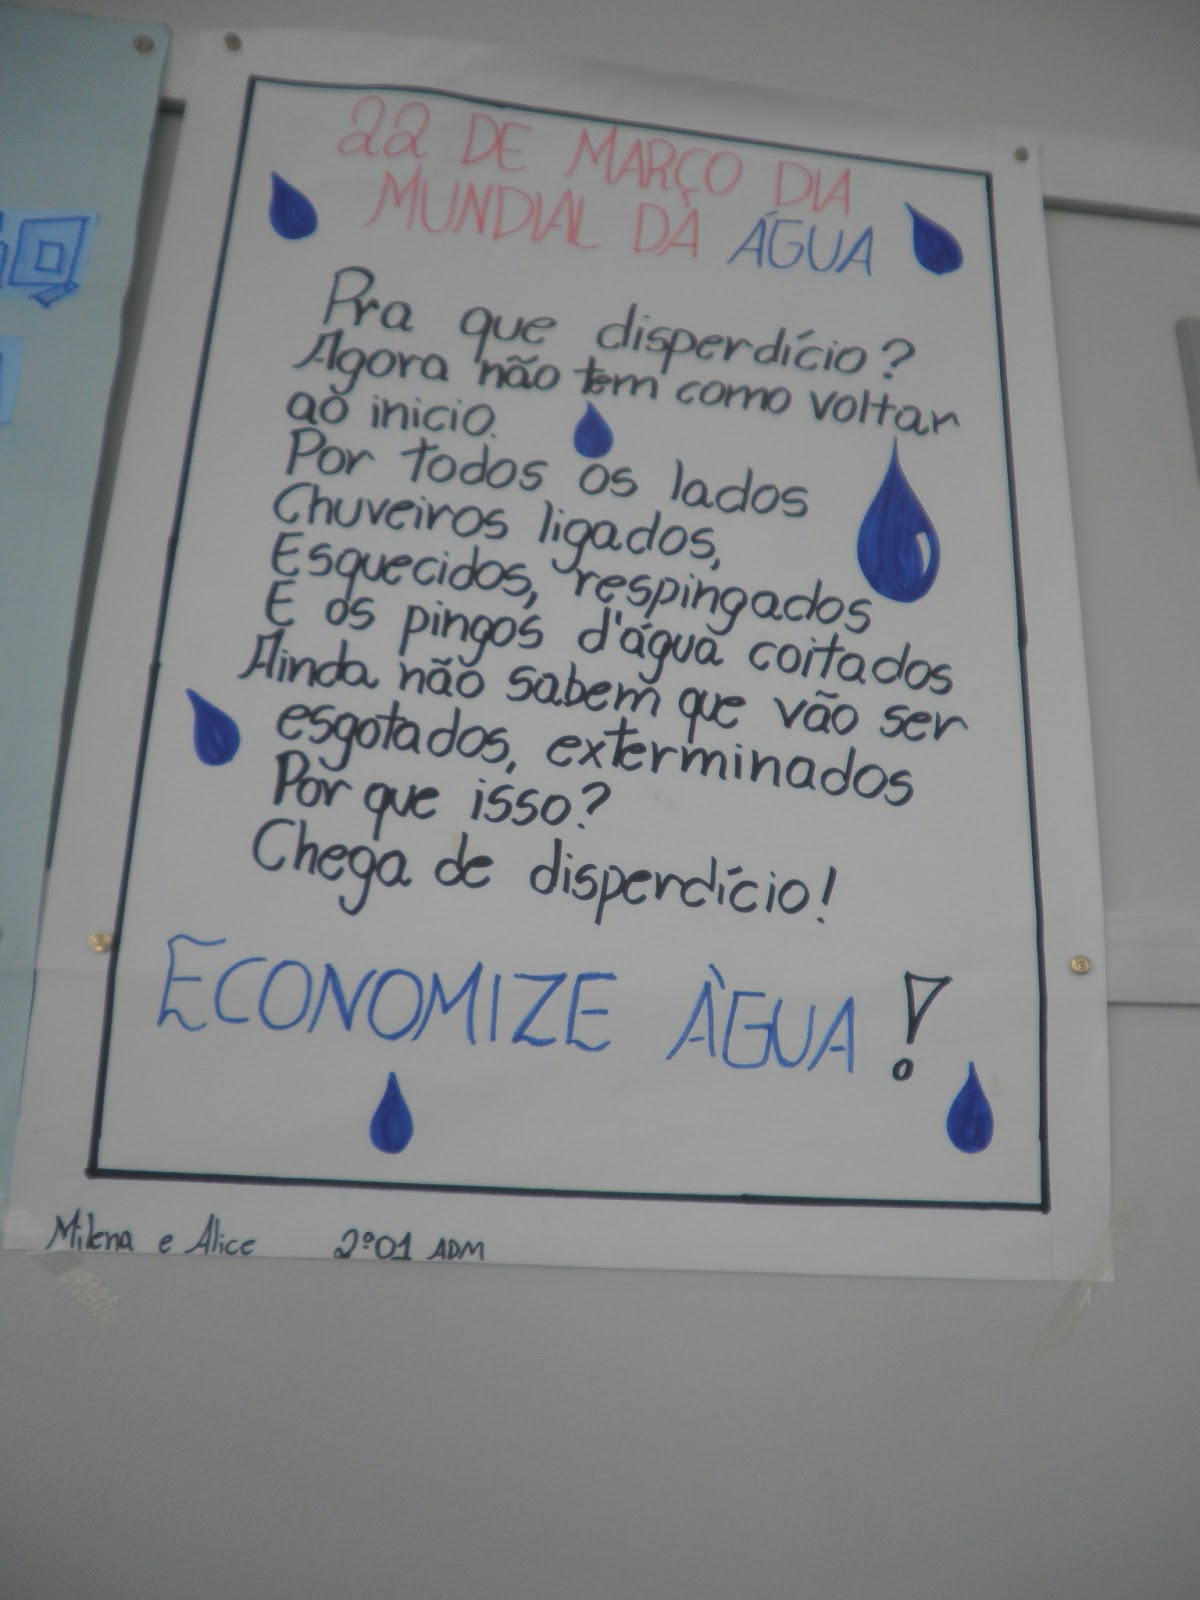 22 DE MARÇO DIA
MUNDIAL DA ÁGUA
Pra que disperdício?
Agora não tem como voltar
ao inicio.
Por todos os lados
Chuveiros ligados,
Esquecidos, respingados
E os pingos d'água coitados
Ainda não sabem que vão ser
esgotados, exterminados
Por que isso?
Chega de disperdício!
ECONOMIZE ÀGUA!
Milena e Alice 2º01 ADM